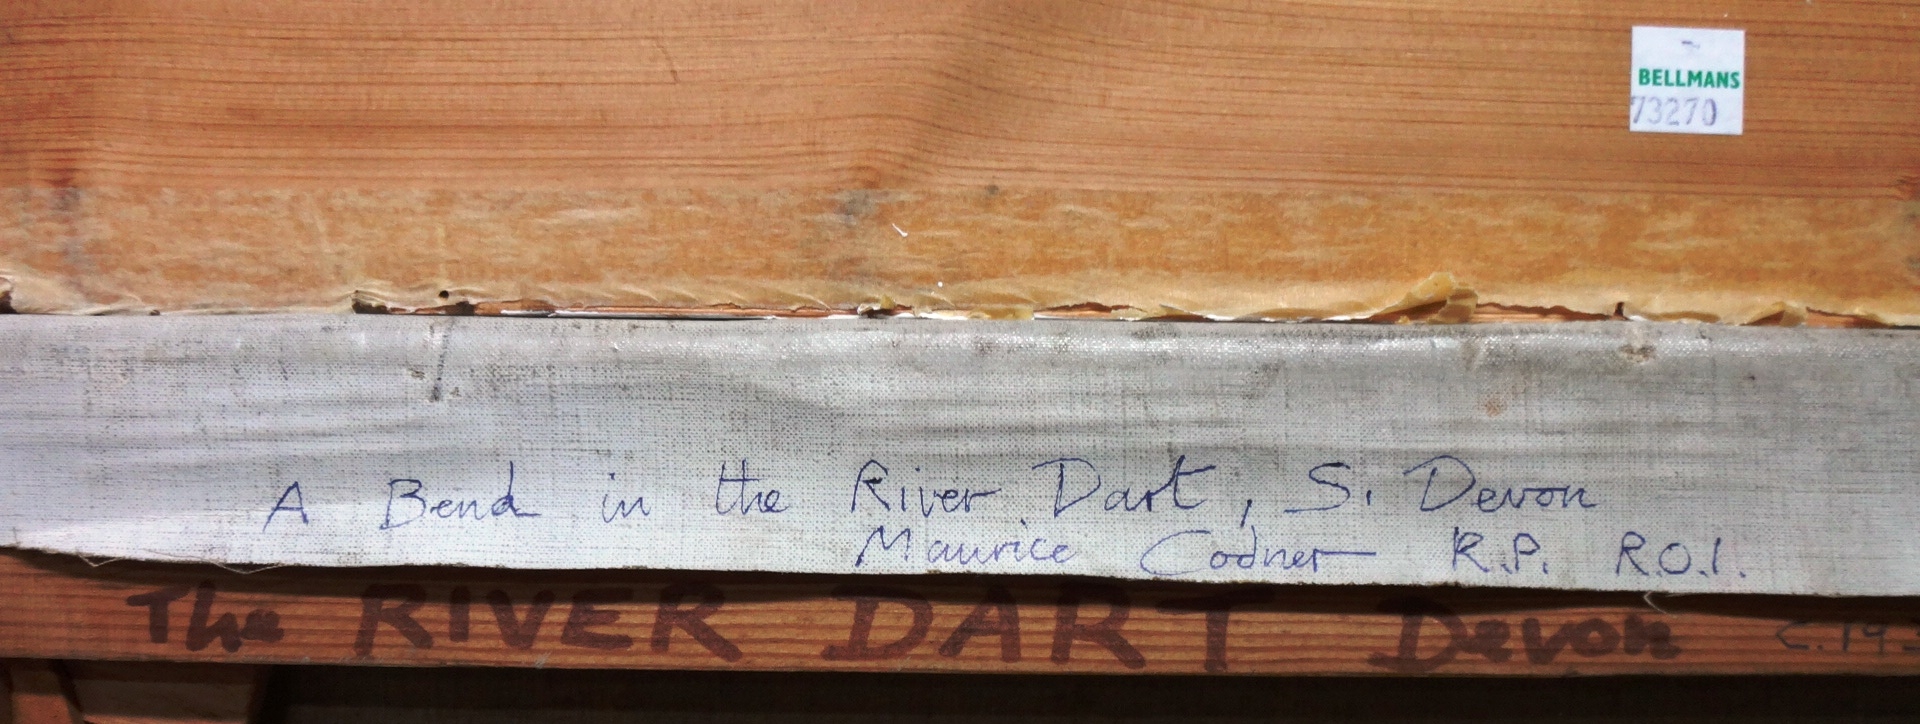 BELLMANS
73270
A Bend in the River Dart, S. Devon
Maurice Codner R.P. R.O.I.
The RIVER DART Devon